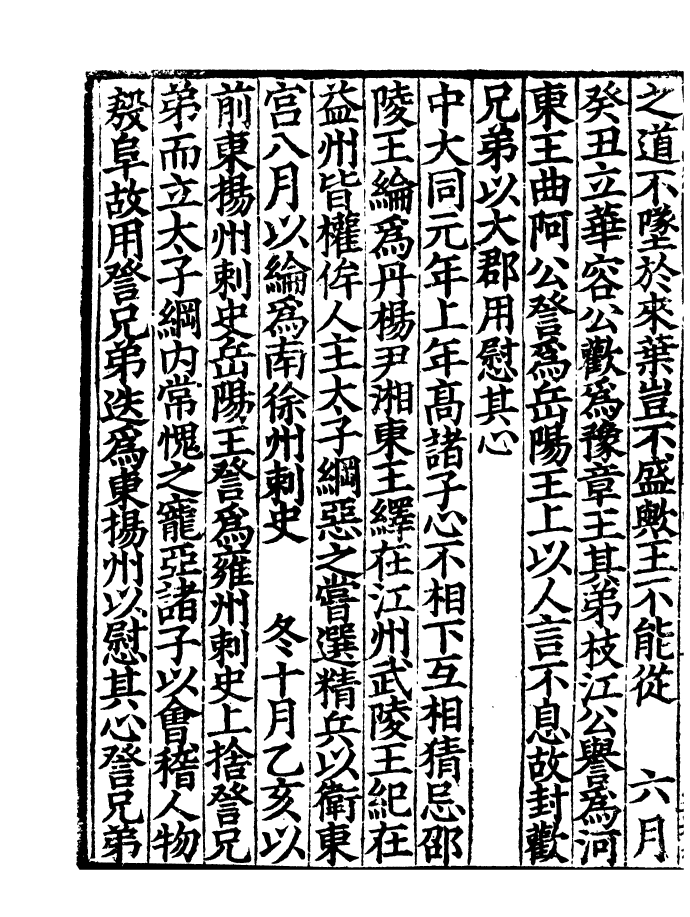 之道不墜於來葉豈不盛歟王不能從　六月
癸丑立華容公歡爲豫章王其弟枝江公譽爲河
東王曲阿公詧爲岳陽王上以人言不息故封歡
兄弟以大郡用慰其心
中大同元年上年髙諸子心不相下互相猜忌邵
陵王綸爲丹楊尹湘東王繹在江州武陵王紀在
益州皆權侔人主太子綱惡之嘗選精兵以衛東
宫八月以綸爲南徐州刺史　冬十月乙亥以
前東揚州刺史岳陽王詧爲雍州刺史上捨詧兄
弟而立太子綱内常愧之寵亞諸子以會稽人物
殷阜故用詧兄弟迭爲東揚州以慰其心詧兄弟